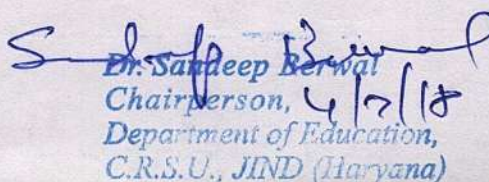 Sandeep Berwal
Dr. Sandeep Berwal
Chairperson, 4/7/18
Department of Education,
C.R.S.U., JIND (Haryana)